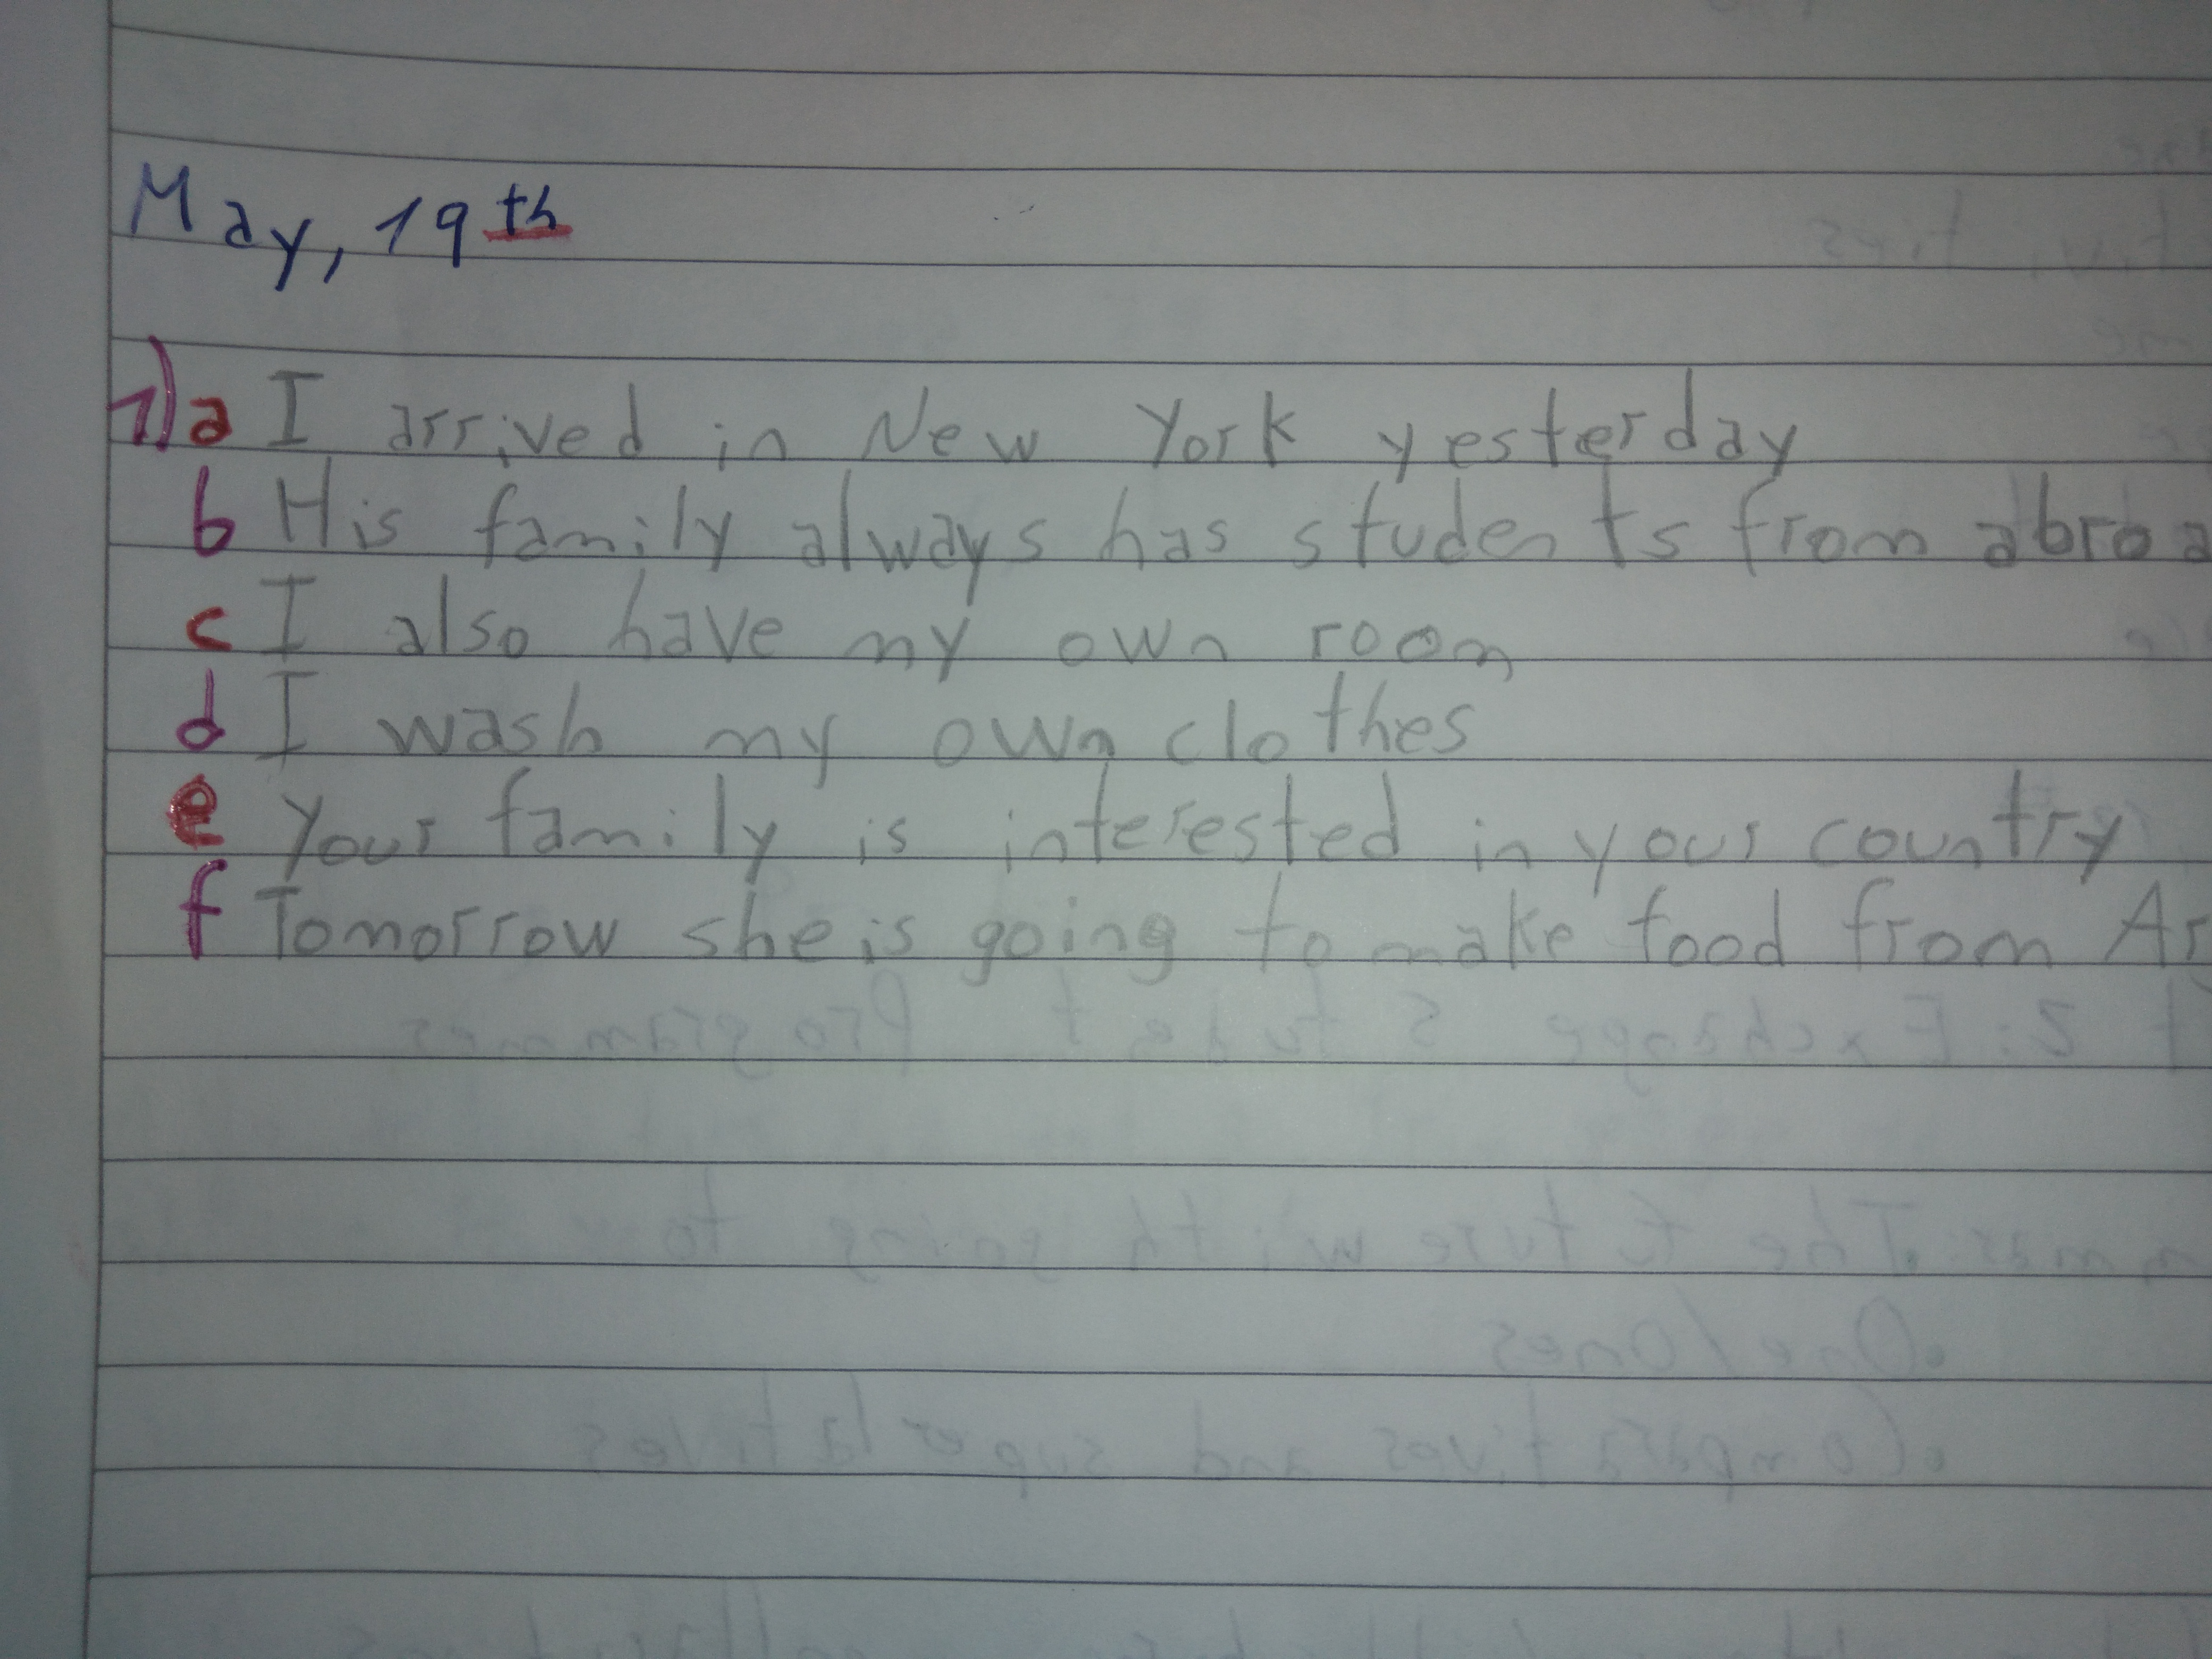 May, 19th
1) a I arrived in New York yesterday
b His family always has students from abroa
c I also have my own room
d I wash my own clothes
e Your family is interested in your country
f Tomorrow she is going to make food from